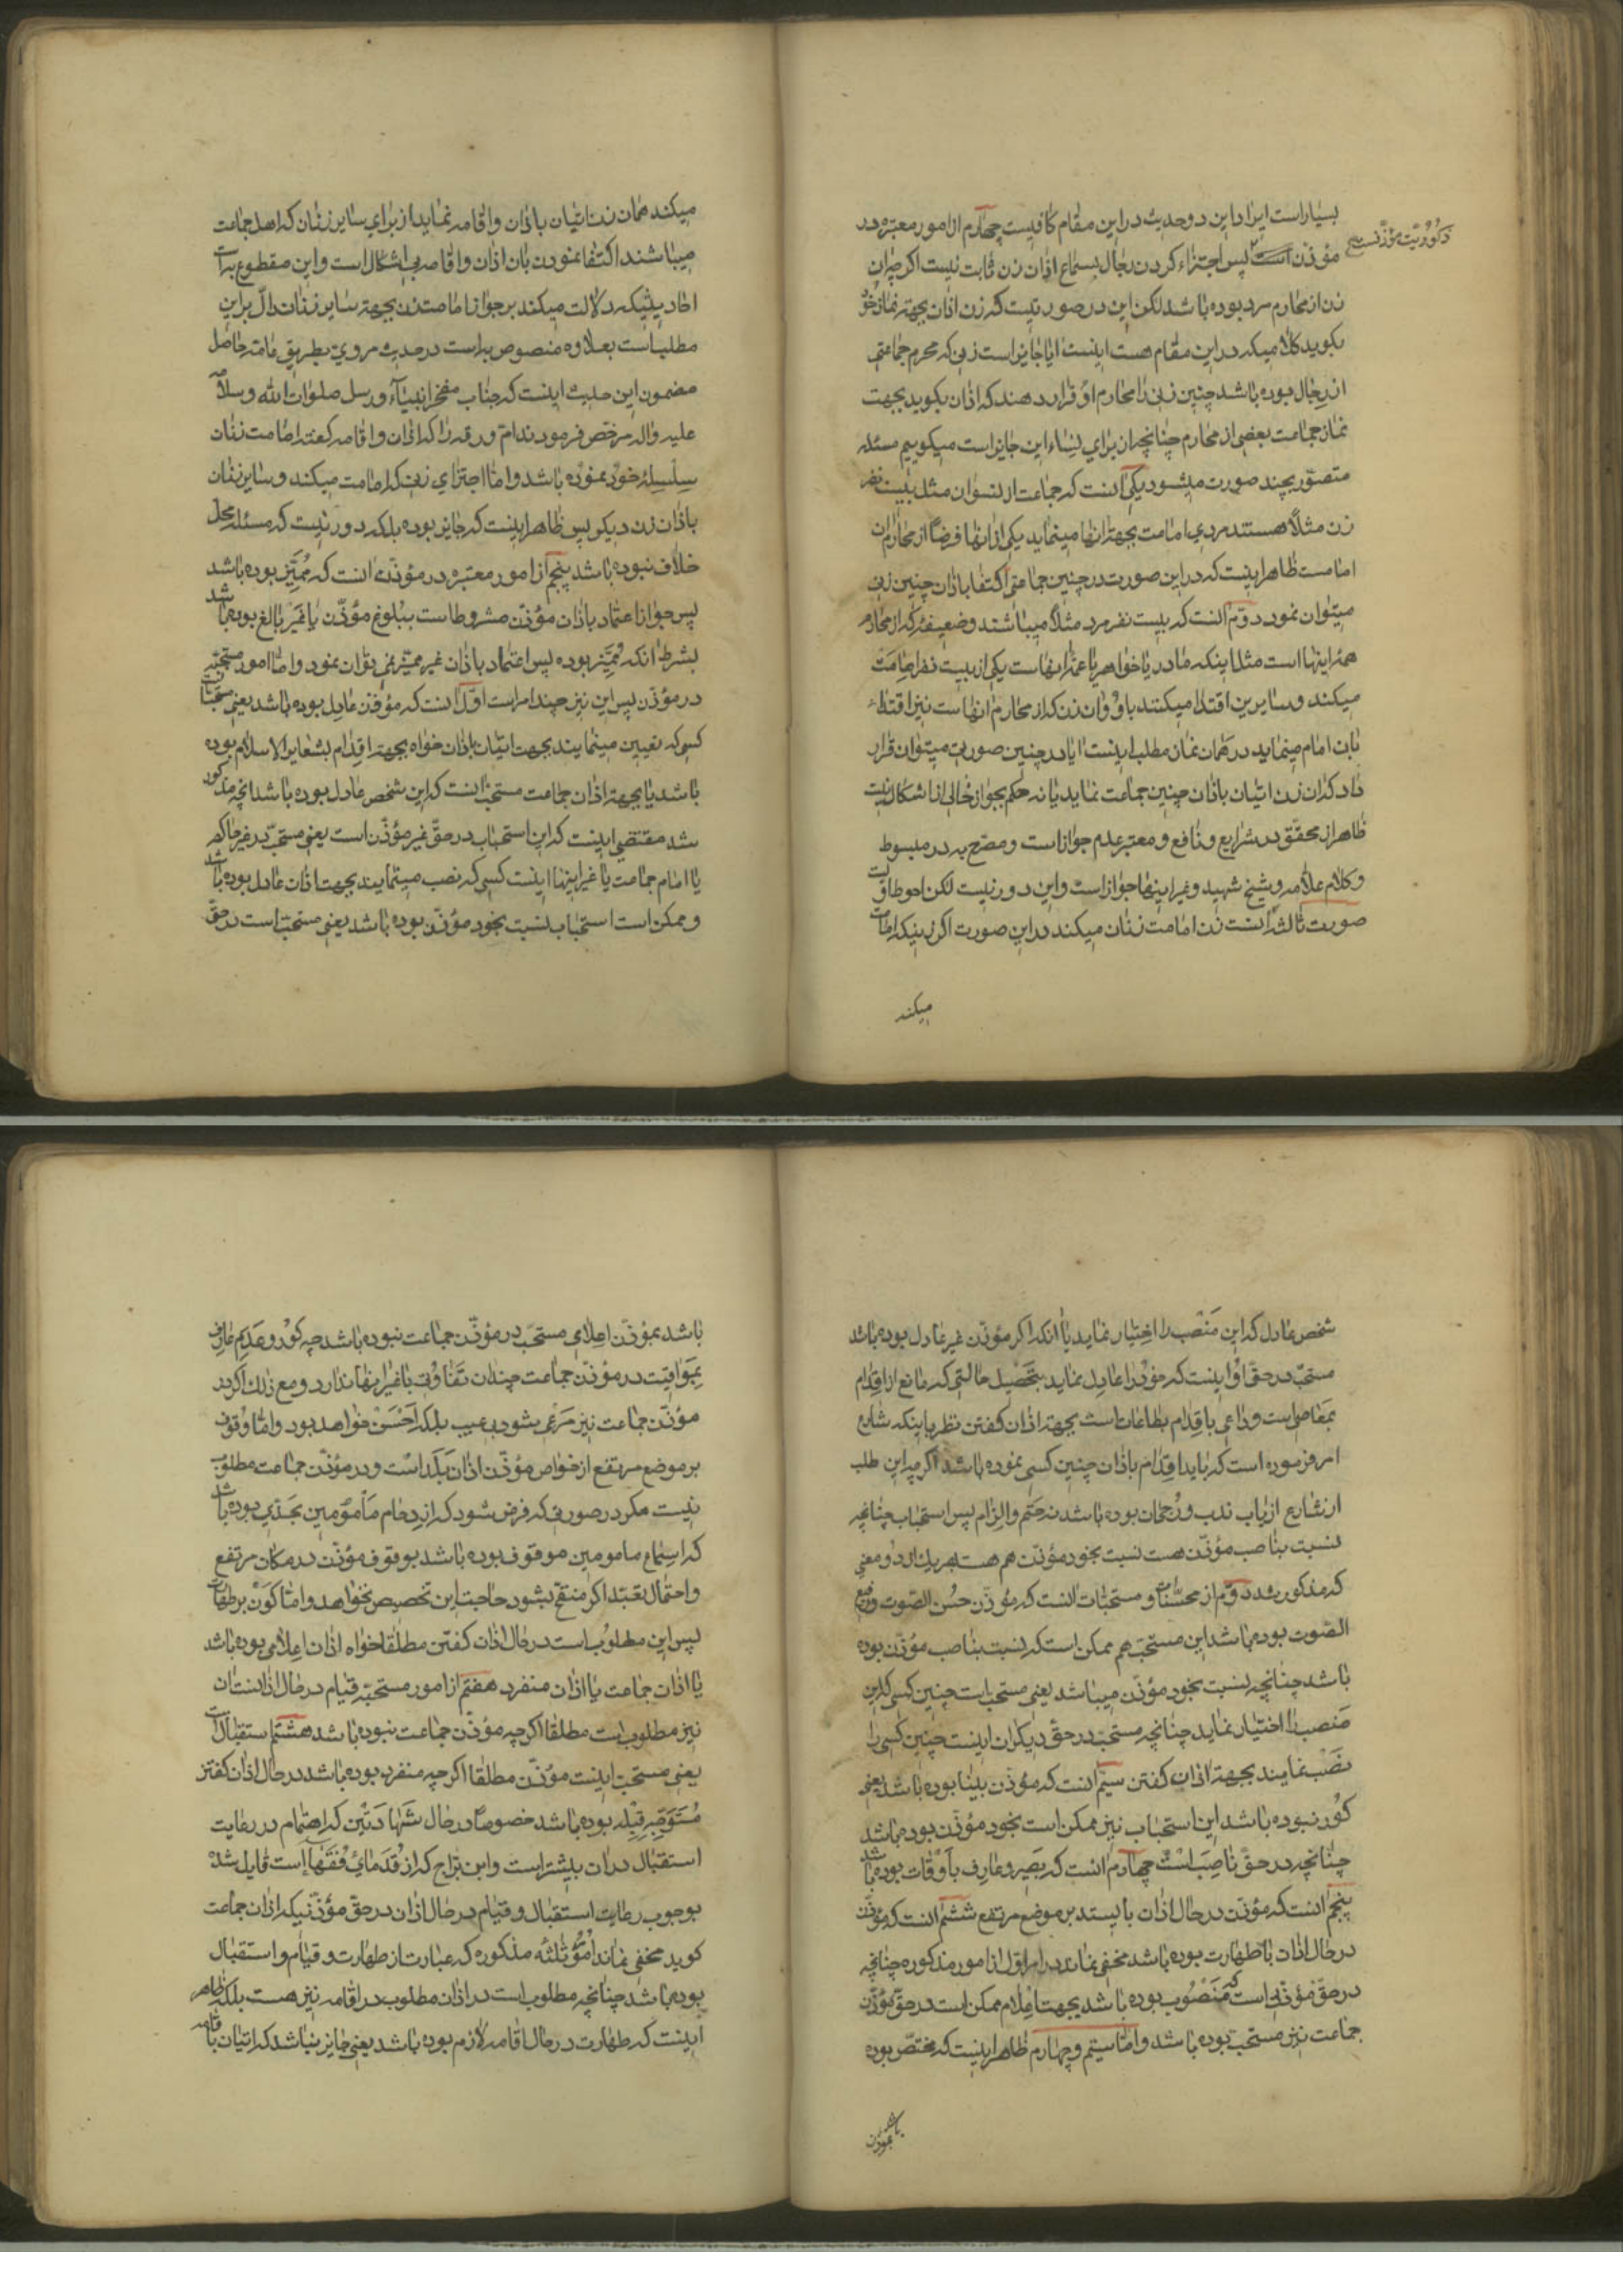 بسیار است ایراد این دو حدیث در این مقام کافیست چهارم از امور معتبره در
ذکوریت مؤذنست صح
مؤذن است پس اجتزاء کردن رجال بسماع اذان زن ثابت نیست اکر چه ان
زن از محارم مرد بوده باشد لکن این در صورتیست که زن اذان بجهة نماز خود
بکوید کلامیکه در این مقام هست اینست ایا جایز است زنی که محرم جماعتی
از رجال بوده باشد چنین زنی را محارم او قرار دهند که اذان بکوید بجهت
نماز جماعت بعضی از محارم چنانچه از برای نساء این جایز است میکوییم مسئله
متصوّر بچند صورت میشود یکی انست که جماعت از نسوان مثل بیست نفر
زن مثلاً هستند مردی امامت بجهة انها مینماید یکی از انها فرضاً از محارم ان
امامست ظاهر اینست که در این صورت در چنین جماعتی اکتفا باذان چنین زنی
میتوان نمود دوّم انست که بیست نفر مرد مثلاً میباشند وضعیفۀ که از محارم
همۀ اینها است مثل اینکه مادر یا خواهر یا عمّۀ اینهاست یکی از بیست نفر امامت
میکند و سایرین اقتدا میکنند باو و ان زن که از محارم انهاست نیز اقتداء
بان امام مینماید در همان نماز مطلب اینست ایا در چنین صورتی میتوان قرار
داد که ان زن اتیان باذان چنین جماعت نماید یا نه حکم بجواز خالی از اشکال نیست
ظاهر از محقّق در شرایع و نافع و معتبر عدم جواز است و مصّرح به در مبسوط
و کلام علاّمه و شیخ شهید و غیر اینها جواز است و این دور نیست لکن احوط اوّلیست
صورت ثالثه انست زن امامت زنان میکند در این صورت اکر زنیکه امامت
میکند
میکند همان زن اتیان باذان و اقامه نماید از برای سایر زنان که اهل جماعت
میباشند اکتفا نمودن بان اذان و اقامه بی اشکال است و این مقطوع به است
احادیثیکه دلالت میکند بر جواز امامت زن بجهة سایر زنان دالّ بر این
مطلب است بعلاوه منصوص به است در حدیث مروی بطریق عامّه حاصل
مضمون این حدیث اینست که جناب مفخر انبیآء و رسل صلوات الله و سلامه
علیه و اله مرخّص فرمودند امّ ورقه را که اذان و اقامه کفته امامت زنان
سلسلۀ خود نموده باشد و امّا اجتزای زنی که امامت میکند و سایر زنان
باذان زن دیکر پس ظاهر اینست که جایز بوده بلکه دور نیست که مسئله محلّ
خلاف نبوده باشد پنجم از امور معتبره در مؤذّن انست که مُمَیِّز بوده باشد
پس جواز اعتماد باذان مؤذّن مشروط است ببلوغ مؤذّن یا غَیر بالغ بوده باشد
بشرط انکه مُمیّز بوده پس اعتماد باذان غیر ممیّز نمی توان نمود و امّا امور مستحبّه
در مؤذّن پس این نیز چند امر است اوّل انست که مؤذن عادل بوده باشد یعنی مستحبّ است
کسی که تعیین مینمایند بجهت اتیان باذان خواه بجهة اقدام بشعایر الاسلام بوده
باشد یا بجهة اذان جماعت مستحبّ انست که این شخص عادل بوده باشد انچه مذکور
شد مقتضی اینست که این استحباب در حقّ غیر مؤذّن است یعنی مستحبّ در غیر حاکم
یا امام جماعت یا غیر اینها اینست کسی که نصب مینمایند بجهت اذان عادل بوده باشد
و ممکن است استحباب نسبت بخود مؤذّن بوده باشد یعنی مستحبّ است در حقّ
شخص عادل که این مَنْصَب را اختیار نماید یا انکه اکر مؤذّن غیر عادل بوده باشد
مستحبّ در حقّ او اینست که خود را عادل نماید بتحَصْیل حالتی که مانع از اقدام
بمعاصی است و داعی باقدام بطاعات است بجهة اذان کفتن نظر باینکه شارع
امر فرموده است که باید اقدام باذان چنین کسی نموده باشد اکر چه این طلب
از شارع از باب ندب و رُجحان بوده باشد نه حَتم و الزام پس استحباب چنانچه
نسبت بناصب مؤذّن هست نسبت بخود مؤذّن هم هست بهر یک از دو معنی
که مذکور شد دوّم از محسّنات و مستحبّات انست که مؤذّن حسُن الصّوت و رفیع
الصّوت بوده باشد این مستحبّ هم ممکن است که نسبت بناصب مؤذّن بوده
باشد چنانچه نسبت بخود مؤذّن میباشد یعنی مستحب است چنین کسی که این
مَنصب را اختیار نماید چنانچه مستحبّ در حقّ دیکران اینست چنین کسی را
نصْب نمایند بجهة اذان کفتن سیّم انست که مؤذّن بینا بوده باشد یعنی
کور نبوده باشد این استحباب نیز ممکن است بخود مؤذّن بوده باشد
چنانچه در حقّ ناصِب است چهارم انست که بَصیر و عارف باَوْقات بوده باشد
پنجم انست که مؤذّن در حال اذان بایستد بر موضع مرتفع ششم انست که مؤذّن
در حال اذان با طهارت بوده باشد مخفی نماند در امر اوّل از امور مذکوره چنانچه
در حقّ مؤذّنی است که مَنْصُوب بوده باشد بجهت اعِلام ممکن است در حقّ مؤذّن
جماعت نیز مستحب بوده باشد و امّا سیّم و چهارم ظاهر اینست که مختصّ بوده
باشد بمؤذّن
باشد بمؤذّن اعِلامی مستحبّ در مؤذّن جماعت نبوده باشد چه کوْر و عَدَمِ عارف
بمَواقِیْت در مؤذّن جماعت چندان تَفاوُتی با غیر اینها ندارد و مع ذلک اکر در
مؤذّن جماعت نیز مَرعی بشود بی عیب بلکه اَحْسَنْ خواهد بود و امّا وُقوف
بر موضع مرتفع از خواص مؤذّن اذان بَلَد است و در مؤذّن جماعت مطلوب
نیست مکر در صورتی که فرض شود که ازدِحام مَأمُومین بحَدّی بوده باشد
که اسِتماع مامومین موقوف بوده باشد بوقوف مؤذّن در مکان مرتفع
و احتمال تعبّد اکر منتفی بشود حاجت این تخصیص نخواهد و امّا کَوْن بر طهارت
پس این مطلوبُ است در حال اذان کفتن مطلقا خواه اذان اِعِلامی بوده باشد
یا اذان جماعت یا اذان منفرد هفتم از امور مستحبّه قیام در حال اذانست ان
نیز مطلوب است مطلقا اکر چه مؤذّن جماعت نبوده باشد هشتم استقبال است
یعنی مستحبّ اینست مؤذّن مطلقا اکر چه منفرد بوده باشد در حال اذان کفتن
مُتَوَجِّهِ قِبْلَه بوده باشد خصوصاً در حال شَهادَتَیْن که اهتمام در رعایت
استقبال در ان بیشتر است و ابن برّاج که از قُدَمایِ فُقَهآء است قایل شده
بوجوب رعایت استقبال و قیام در حال اذان در حقّ مؤذّنیکه اذان جماعت
کوید مخفی نماند امُوُر ثلثَه مذکوره که عبارت از طهارت و قیام و استقبال
بوده باشد چنانچه مطلوب است در اذان مطلوب در اقامه نیز هست بلکه ظاهر
اینست که طهارت در حال اقامه لازم بوده باشد یعنی جایز نباشد که اتیان باقامه